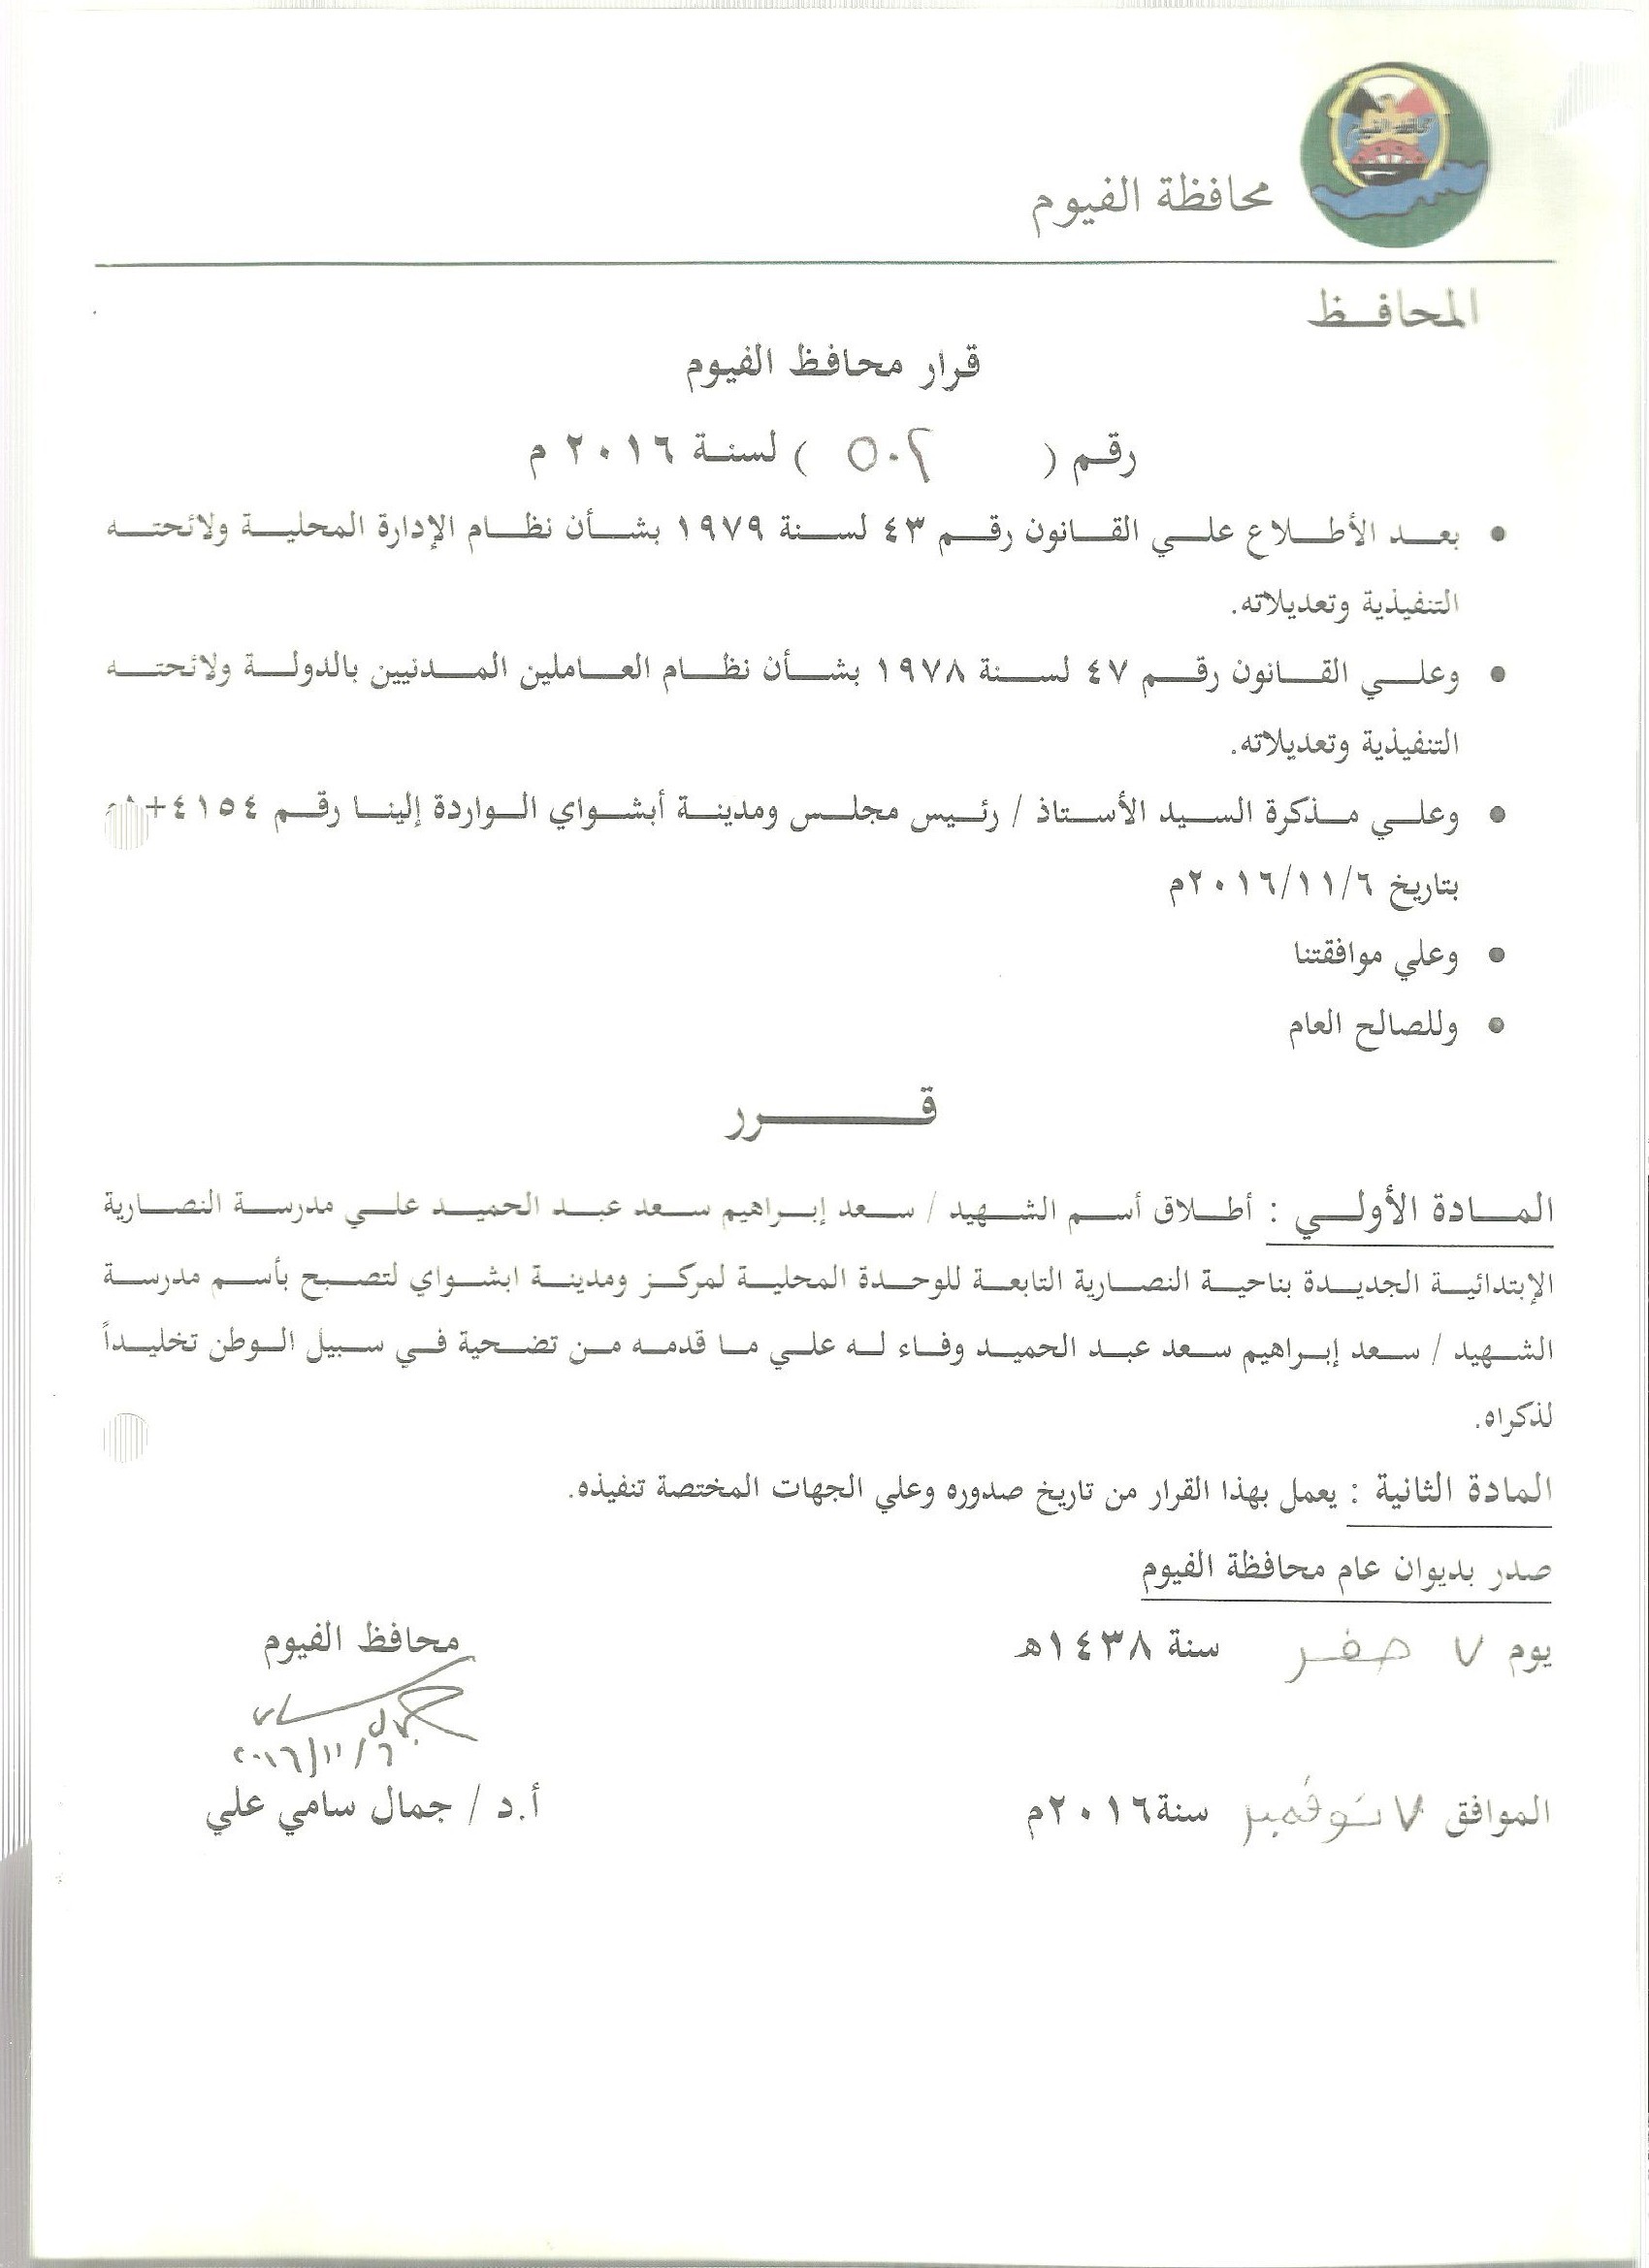 محافظة الفيوم
محافظة الفيوم
المحافظ
قرار محافظ الفيوم
رقم ( ٥٠٢ ) لسنة ٢٠١٦ م
• بعد الأطلاع علي القانون رقم ٤٣ لسنة ١٩٧٩ بشأن نظام الإدارة المحلية ولائحته
التنفيذية وتعديلاته.
• وعلي القانون رقم ٤٧ لسنة ١٩٧٨ بشأن نظام العاملين المدنيين بالدولة ولائحته
التنفيذية وتعديلاته.
• وعلي مذكرة السيد الأستاذ / رئيس مجلس ومدينة أبشواي الواردة إلينا رقم ٤١٥٤+
بتاريخ ٢٠١٦/١١/٦م
• وعلي موافقتنا
• وللصالح العام
قرر
المادة الأولي : أطلاق أسم الشهيد / سعد إبراهيم سعد عبد الحميد علي مدرسة النصارية
الإبتدائية الجديدة بناحية النصارية التابعة للوحدة المحلية لمركز ومدينة ابشواي لتصبح بأسم مدرسة
الشهيد / سعد إبراهيم سعد عبد الحميد وفاء له علي ما قدمه من تضحية في سبيل الوطن تخليداً
لذكراه.
المادة الثانية : يعمل بهذا القرار من تاريخ صدوره وعلي الجهات المختصة تنفيذه.
صدر بديوان عام محافظة الفيوم
يوم ٧ صفر سنة ١٤٣٨هـ
محافظ الفيوم
٢٠١٦/١١/٦
الموافق ٧ نوفمبر سنة٢٠١٦م
أ.د / جمال سامي علي